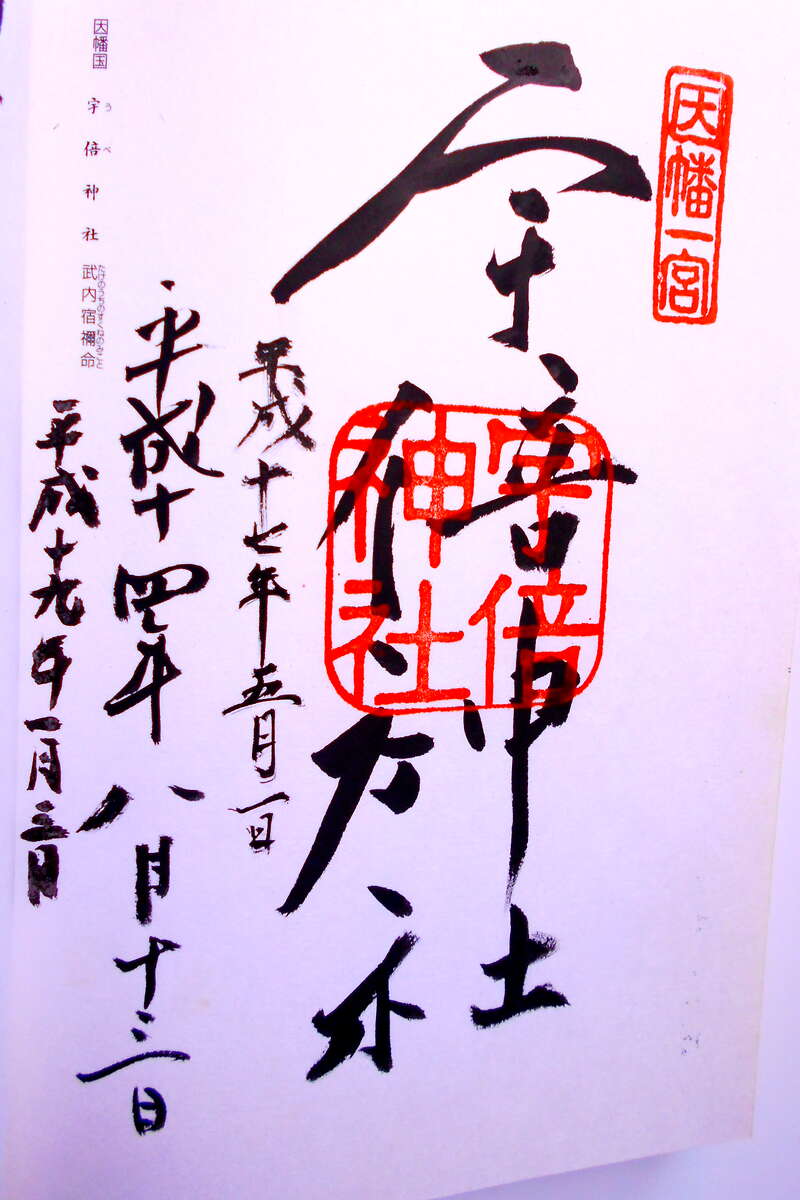 因幡一宮
宇倍神社
宇倍
神社
平成十七年五月一日
平成十四年八月十三日
因幡国 宇倍神社 武内宿禰命
うべ たけのうちのすくねのみこと
平成十九年一月三日